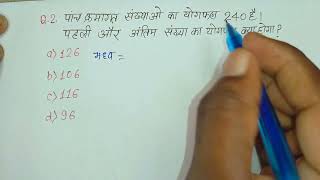 Q.2. पांच क्रमागत संख्याओं का योगफल 240 है!
पहली और अंतिम संख्या का योगफल क्या होगा?
a) 126
मध्य =
b) 106
c) 116
d) 96